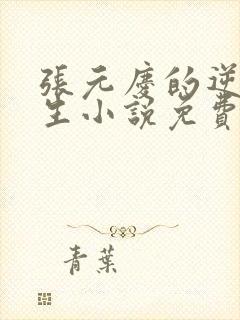 張元慶的逆
生小說免費
青葉